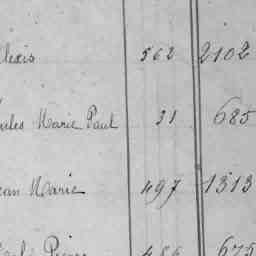 Alexis 562 2102
Jules Marie Paul 31 685
Jean Marie 497 1313
Pierre 486 675